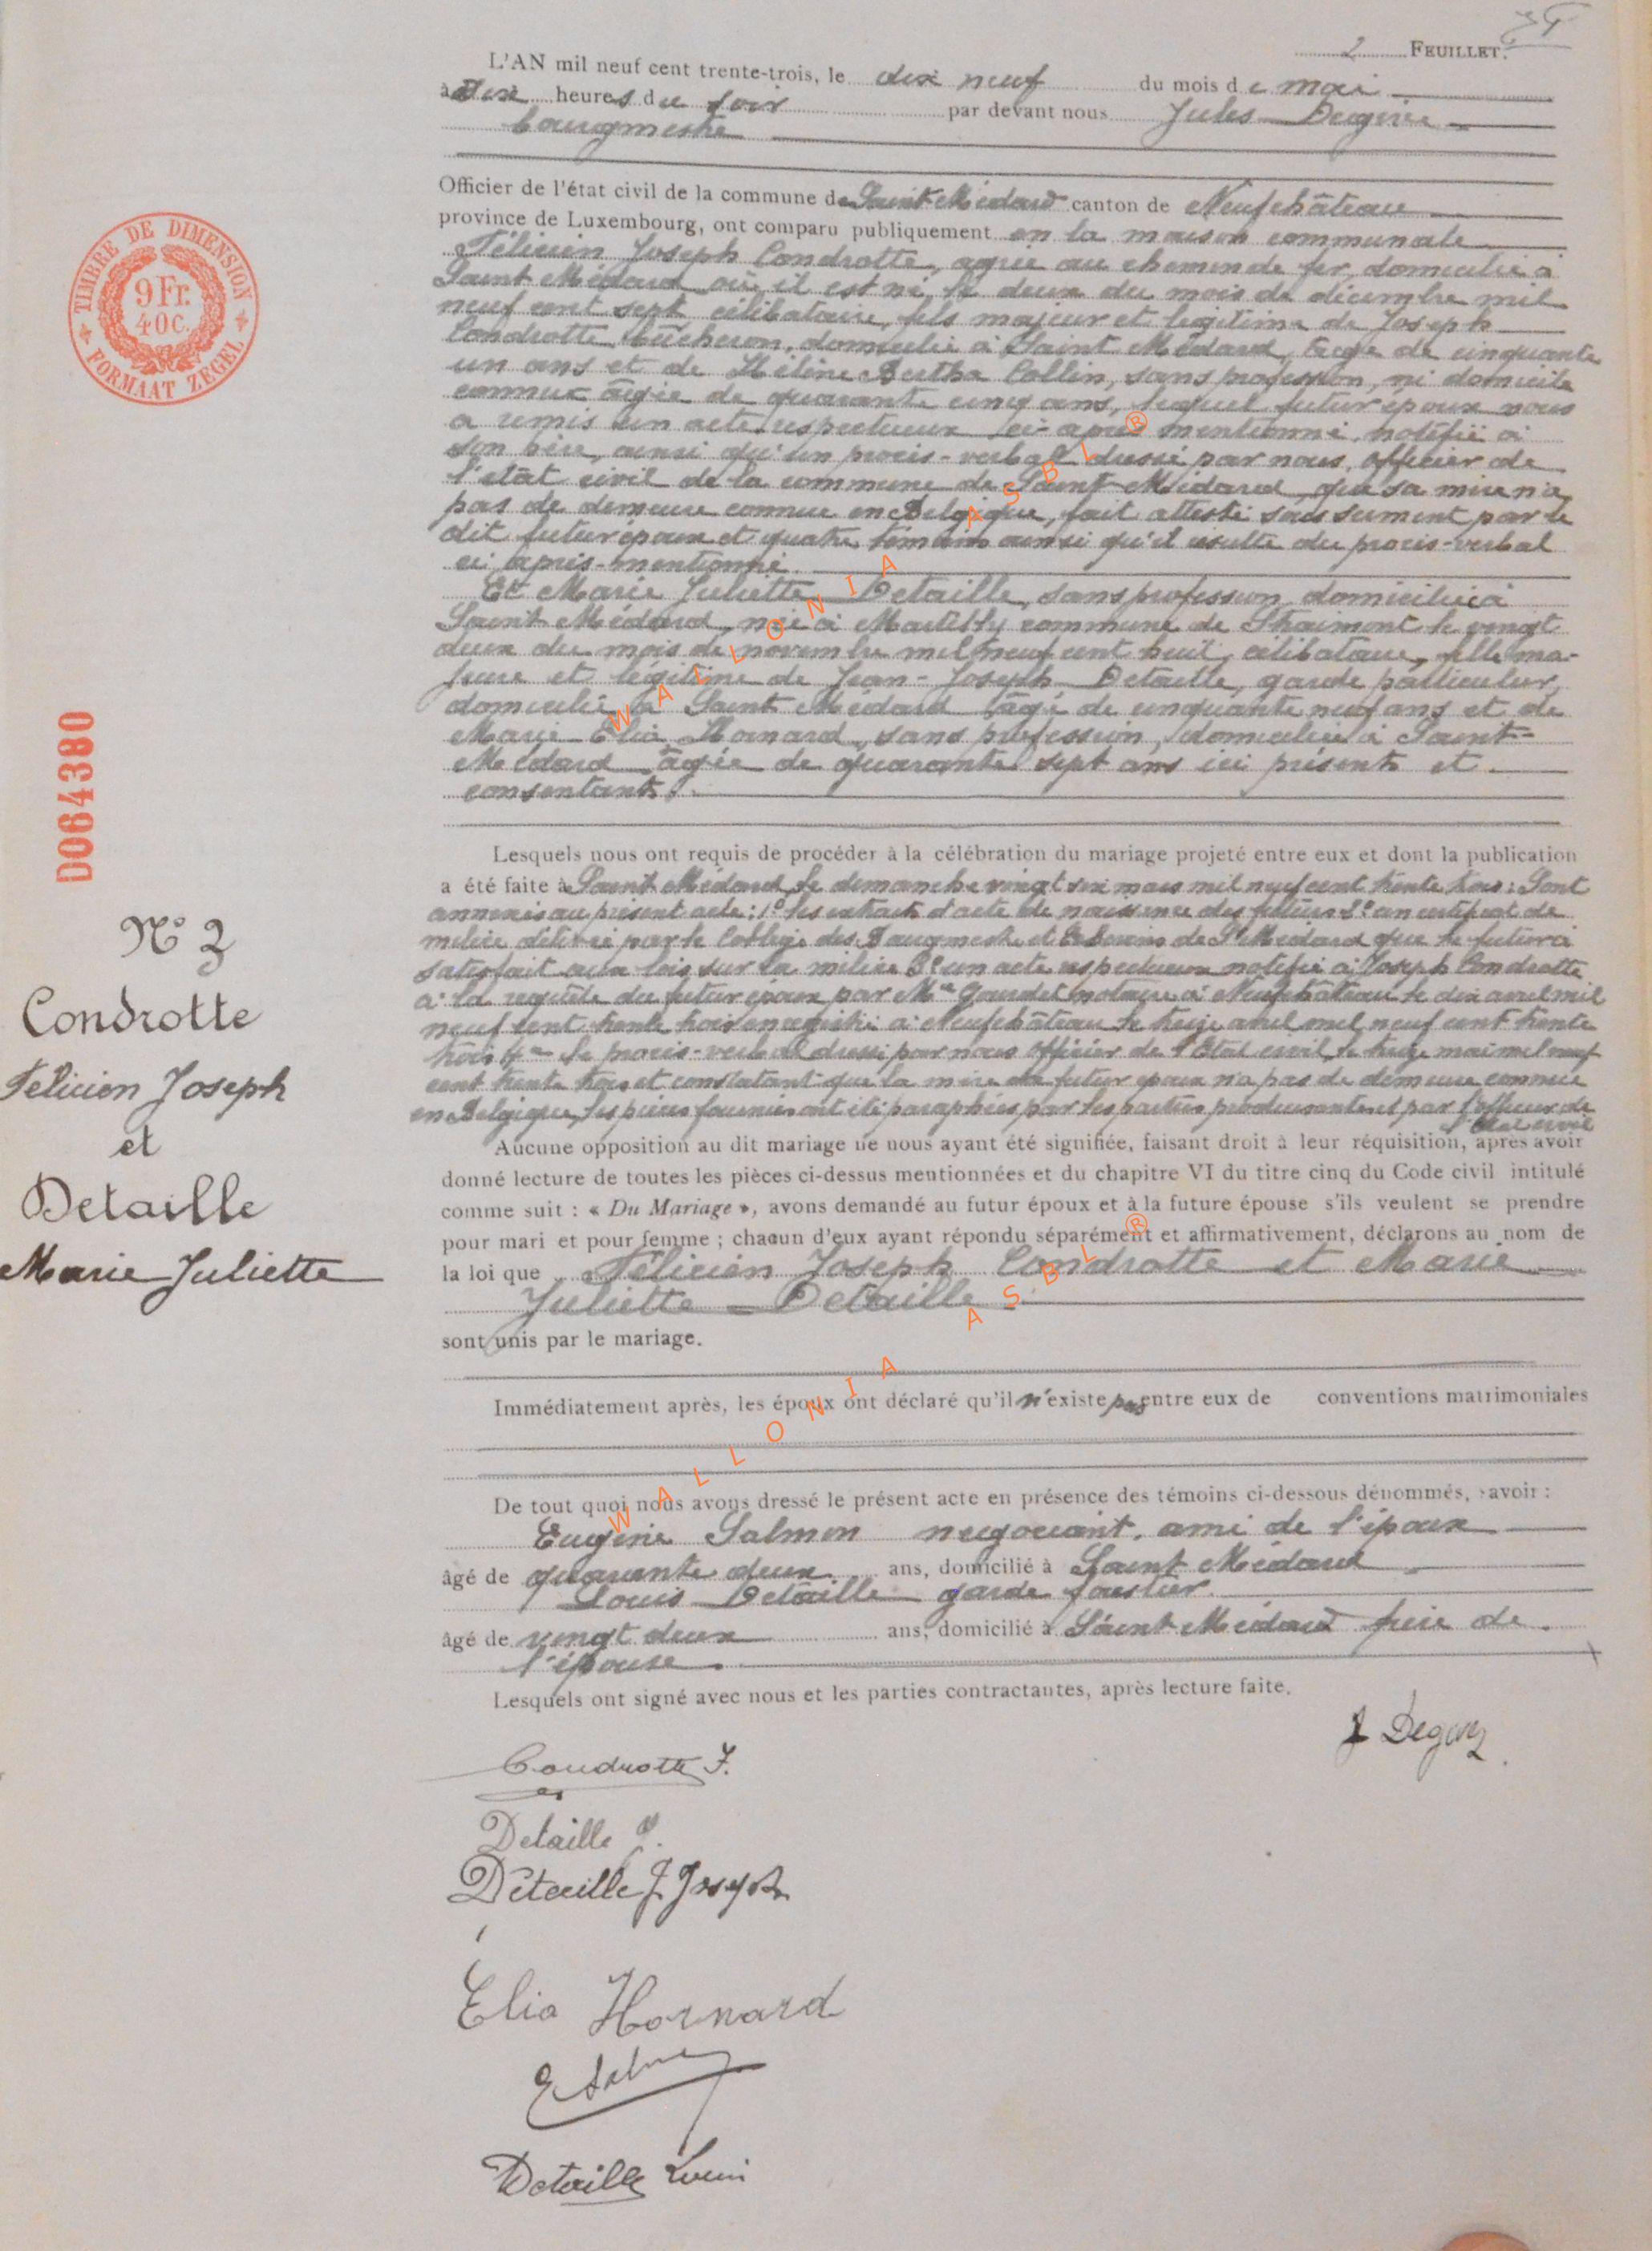 2 FEUILLET.
L'AN mil neuf cent trente-trois, le dix neuf du mois de mai
à heures du soir par devant nous Jules
bourgmestre
Officier de l'état civil de la commune de Saint-Médard canton de Neufchâteau
province de Luxembourg, ont comparu publiquement en la maison communale
Félicien Joseph Condrotte, agréé au chemin de fer, domicilié à
Saint Médard où il est né le deux du mois de décembre mil
neuf cent sept célibataire, fils majeur et légitime de Joseph
Condrotte, bûcheron, domicilié à Saint Médard, âgé de cinquante
un ans et de Hélène Bertha Collin, sans profession, ni domicile
connus âgée de quarante cinq ans, lequel futur époux nous
a remis un acte respectueux ci-après mentionné, notifié à
son père, ainsi qu'un procès-verbal dressé par nous, officier de
l'état civil de la commune de Saint-Médard, que sa mère n'a
pas de demeure connue en Belgique, fait attesté sous serment par le
dit futur époux et quatre témoins ainsi qu'il résulte du procès-verbal
ci après-mentionné.
Et Marie Juliette Detaille, sans profession, domiciliée à
Saint Médard, née à Martilly commune de Straimont le vingt
deux du mois de novembre mil neuf cent huit, célibataire, fille ma-
jeure et légitime de Jean-Joseph Detaille, garde particulier,
domicilié à Saint Médard âgé de cinquante neuf ans et de
Marie Elia Hornard, sans profession, domiciliée à Saint-
Médard âgée de quarante sept ans ici présents et
consentants.
Lesquels nous ont requis de procéder à la célébration du mariage projeté entre eux et dont la publication
a été faite à Saint Médard, le dimanche vingt six mars mil neuf cent trente trois: Sont
annexés au présent acte: 1° les extraits d'acte de naissance des futurs 2° un certificat de
milice délivré par le Collège des Bourgmestre et Echevins de St Médard que le futur a
satisfait aux lois sur la milice 3° un acte respectueux notifié à Joseph Condrotte
à la requête du futur époux par Me Gaudet notaire à Neufchâteau le dix avril mil
neuf cent trente trois enregistré à Neufchâteau le treize avril mil neuf cent trente
trois 4° le procès-verbal dressé par nous Officier de l'Etat civil, le treize mai mil neuf
cent trente trois et constatant que la mère du futur époux n'a pas de demeure connue
en Belgique, les pièces fournies ont été paraphées par les parties produisantes et par l'officier de
l'Etat civil
Aucune opposition au dit mariage ne nous ayant été signifiée, faisant droit à leur réquisition, après avoir
donné lecture de toutes les pièces ci-dessus mentionnées et du chapitre VI du titre cinq du Code civil intitulé
comme suit : « Du Mariage », avons demandé au futur époux et à la future épouse s'ils veulent se prendre
pour mari et pour femme ; chacun d'eux ayant répondu séparément et affirmativement, déclarons au nom de
la loi que Félicien Joseph Condrotte et Marie
Juliette Detaille
sont unis par le mariage.
Immédiatement après, les époux ont déclaré qu'il n'existe pas entre eux de conventions matrimoniales
De tout quoi nous avons dressé le présent acte en présence des témoins ci-dessous dénommés, savoir :
Eugène Salmon négociant, ami de l'époux
âgé de quarante deux ans, domicilié à Saint Médard
Louis Detaille garde forestier
âgé de vingt deux ans, domicilié à Saint Médard frère de
l'épouse.
Lesquels ont signé avec nous et les parties contractantes, après lecture faite.
Condrotte F.
Detaille J.
Détaille J Joseph
Elia Hornard
Detaille Louis
TIMBRE DE DIMENSION
9 Fr.
40 C.
FORMAAT ZEGEL
D064380
N° 3
Condrotte
Félicien Joseph
et
Detaille
Marie Juliette
WALLONIA ASBL ®
WALLONIA ASBL ®